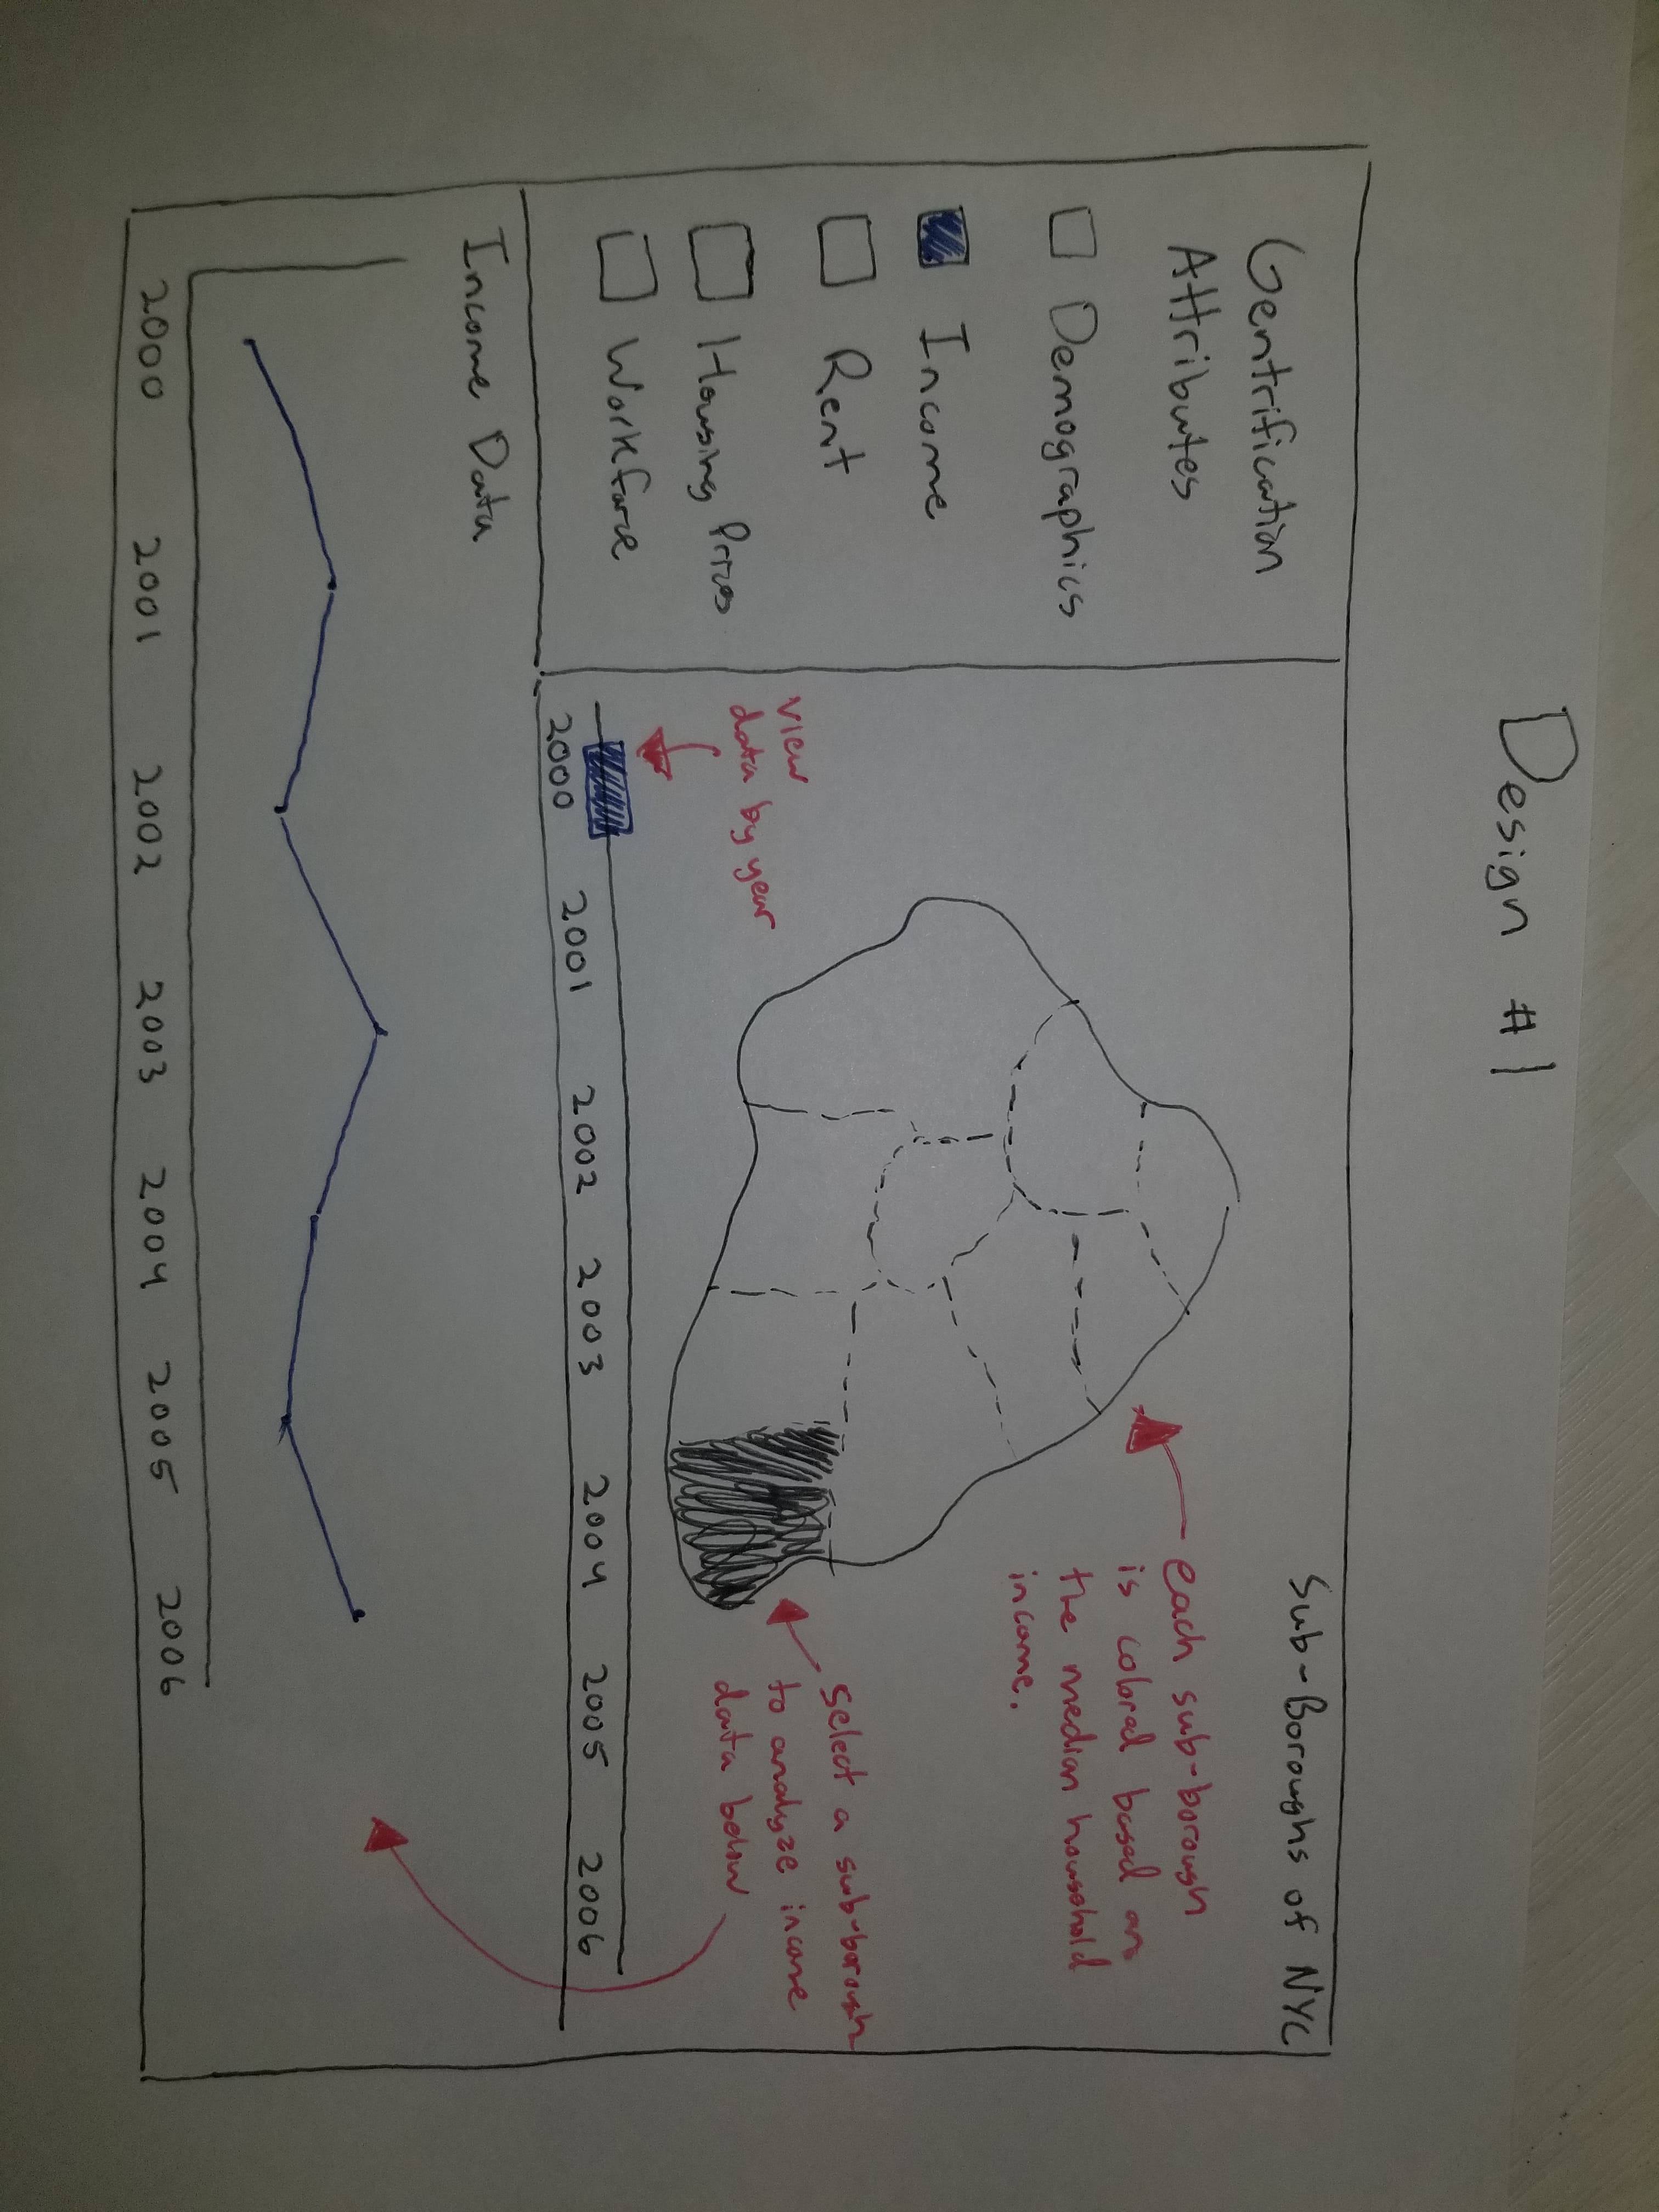 Design #1
Gentrification
Attributes
Demographics
Income
Rent
Housing Prices
Workforce
Sub-Boroughs of NYC
each sub-borough
is colored based on
the median household
income.
select a sub-borough
to analyze income
data below
view
data by year
2000 2001 2002 2003 2004 2005 2006
Income Data
2000 2001 2002 2003 2004 2005 2006